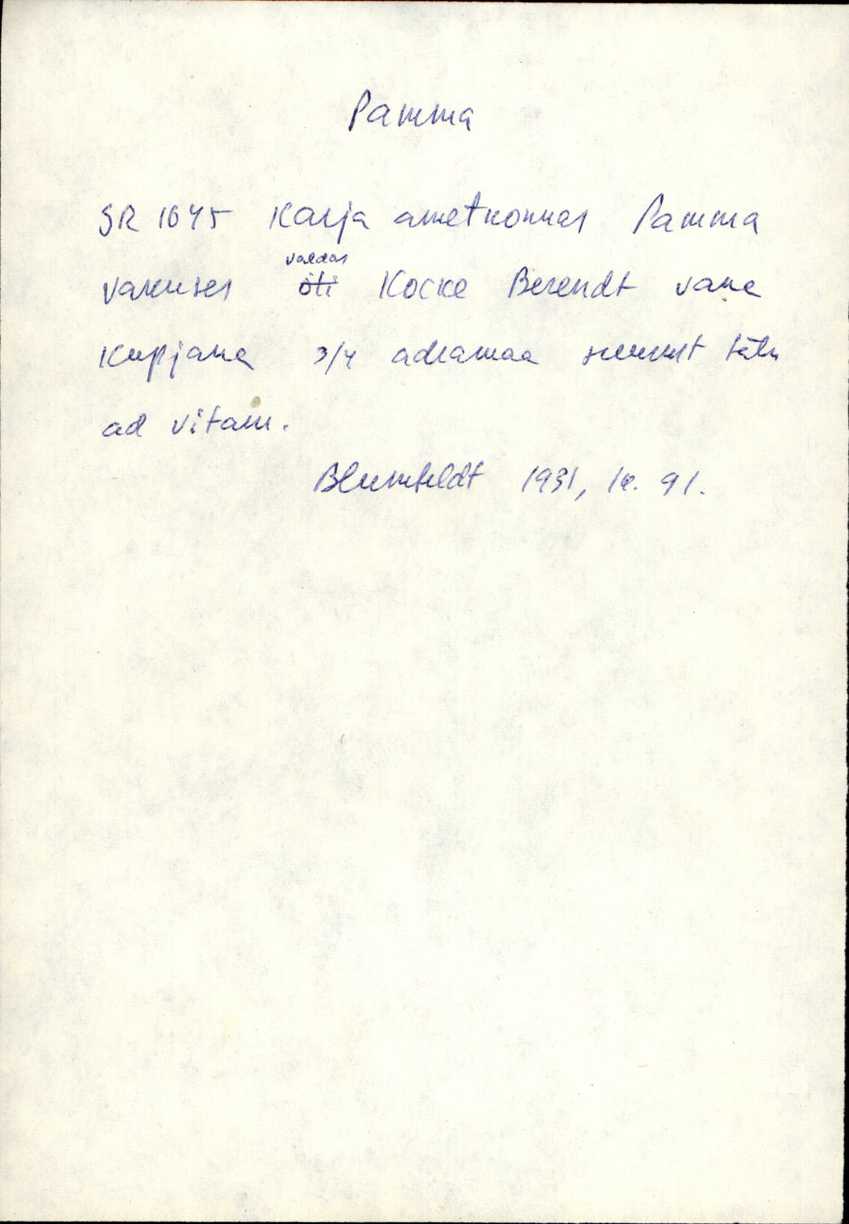 Pamma
SR 1645 Karja ametkonnas Pamma
vakuses valdas ~~oli~~ Kocke Berendt vana
Kupjana 3/4 adramaa suurust talu
ad vitam.
Blumfeldt 1931, lk. 91.